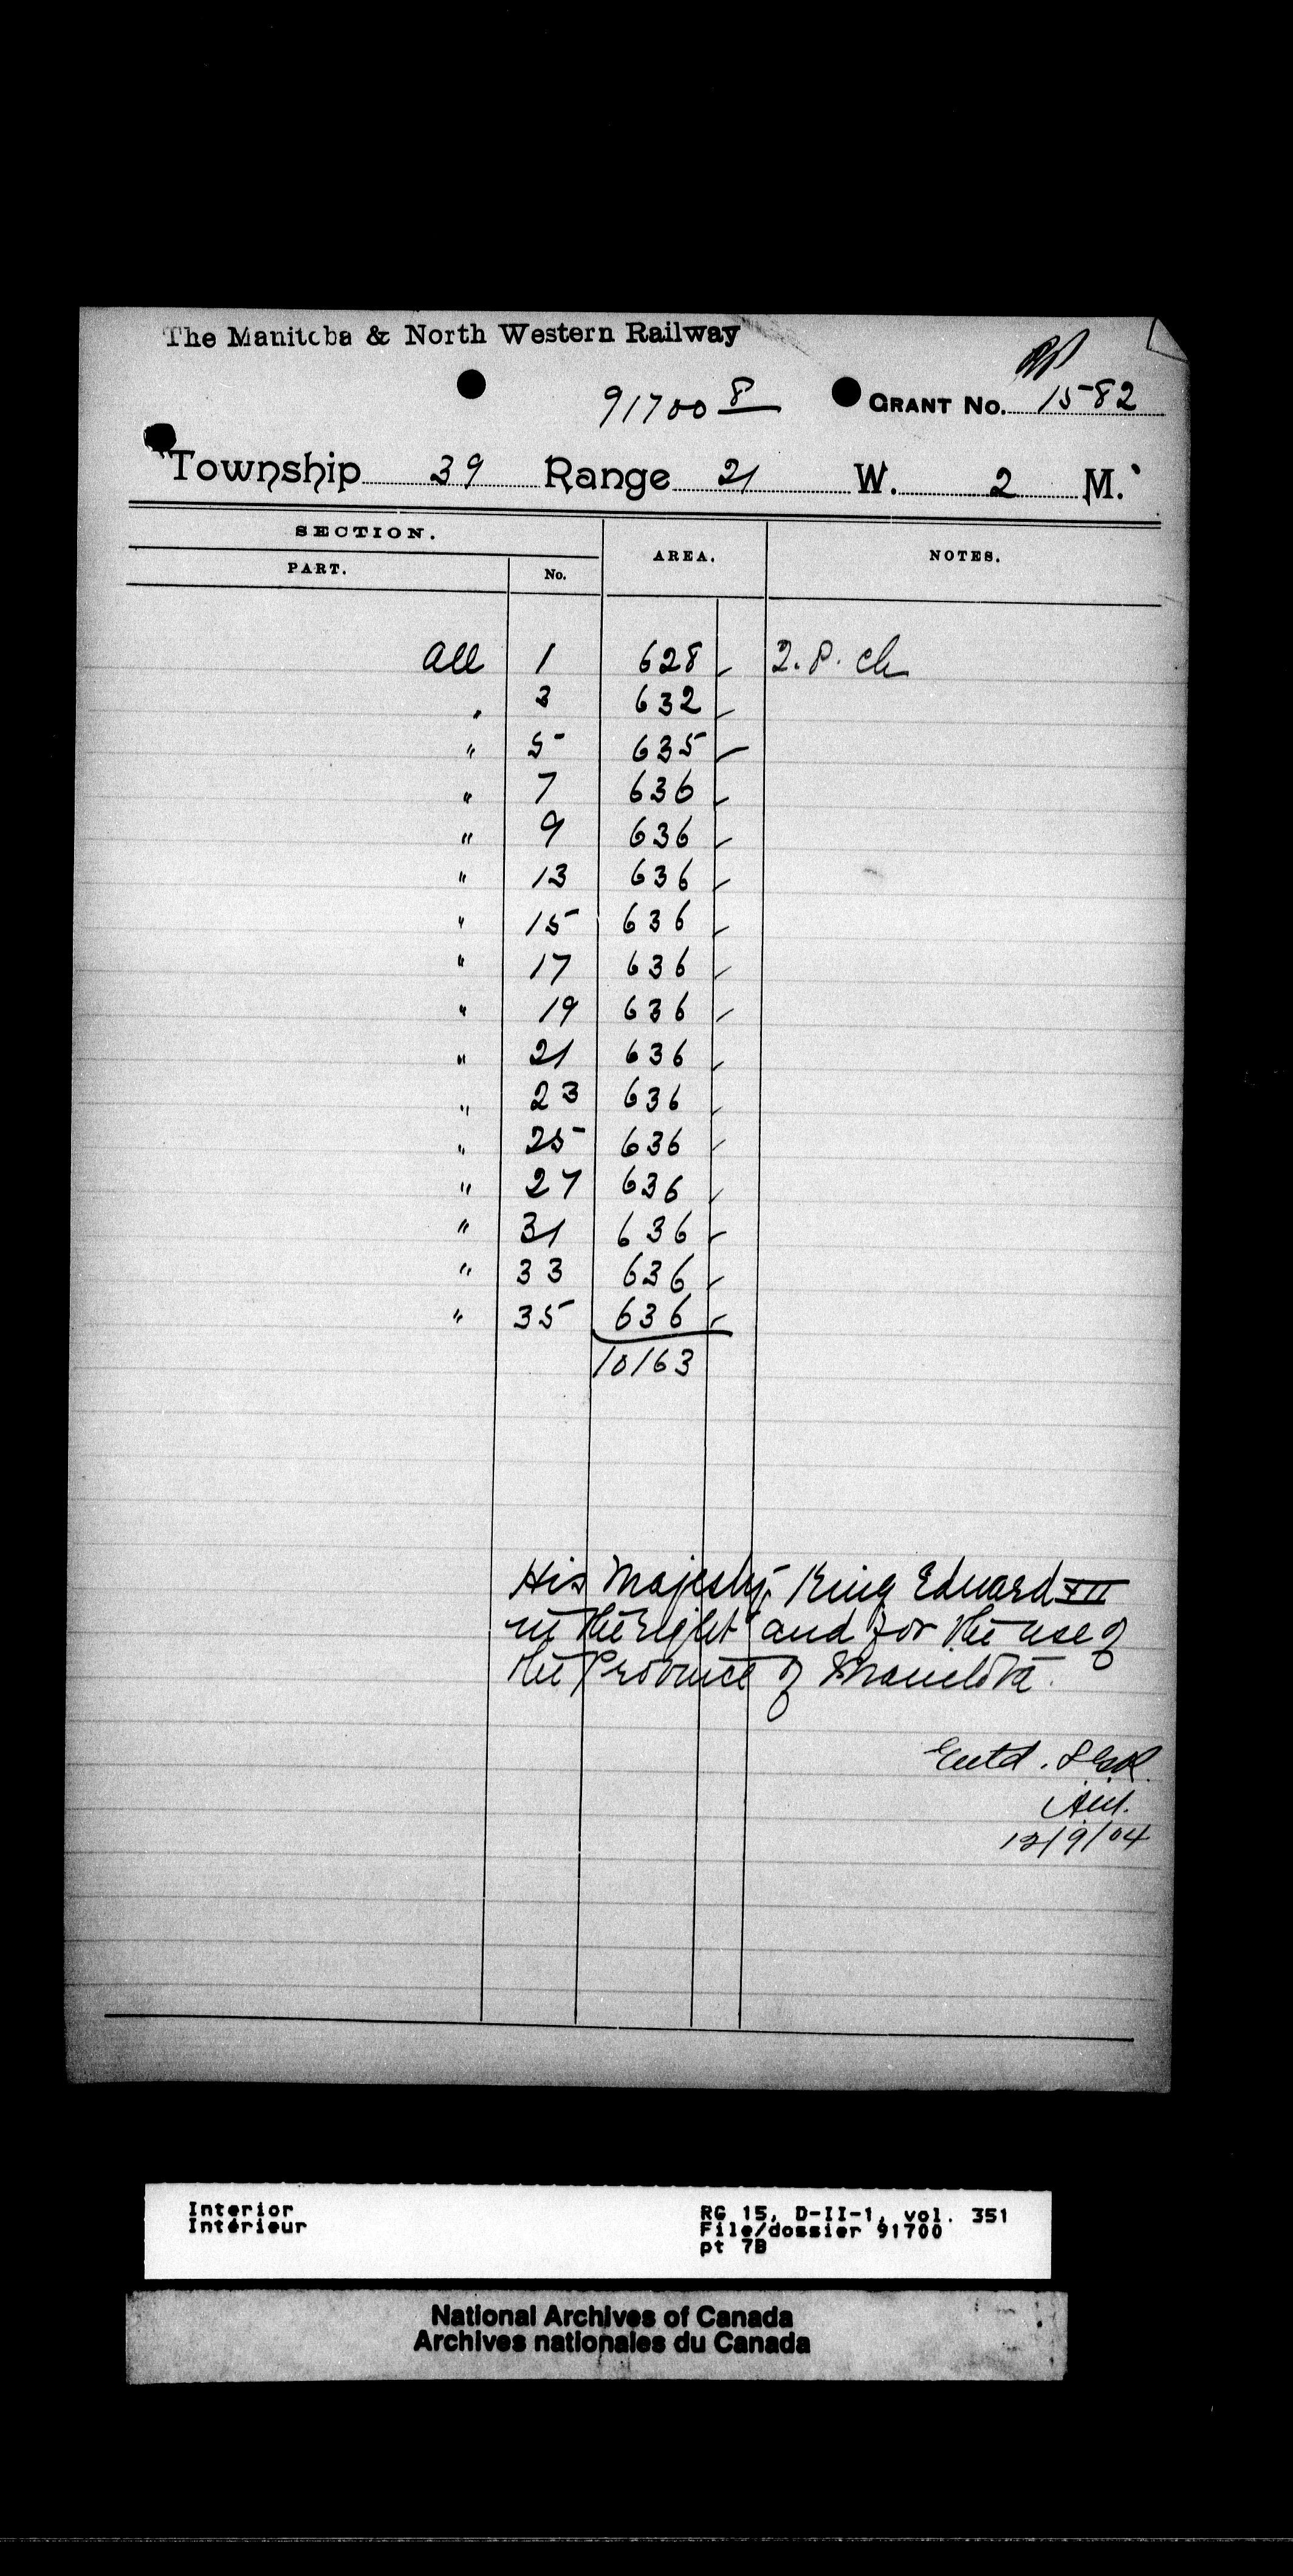 The Manitoba & North Western Railway
91700 8 GRANT No. 1582
Township 39 Range 21 W. 2 M.
SECTION. AREA. NOTES.
PART. No.
All 1 628 2. P. ch
" 3 632
" 5 635
" 7 636
" 9 636
" 13 636
" 15 636
" 17 636
" 19 636
" 21 636
" 23 636
" 25 636
" 27 636
" 31 636
" 33 636
" 35 636
10163
His Majesty King Edward VII
in the right and for the use of
the Province of Manitoba.
Entd.
12/9/04
Interior
Intérieur
RG 15, D-II-1, vol. 351
File/dossier 91700
pt 7B
National Archives of Canada
Archives nationales du Canada